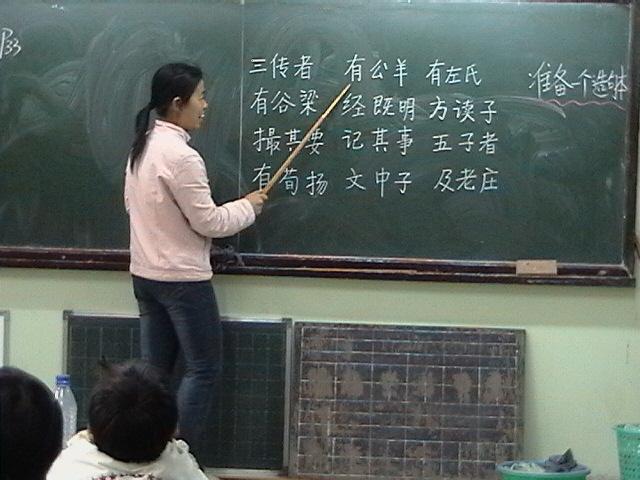 P33
三传者 有公羊 有左氏
有谷梁 经既明 方读子
撮其要 记其事 五子者
有荀扬 文中子 及老庄
准备一个造句本